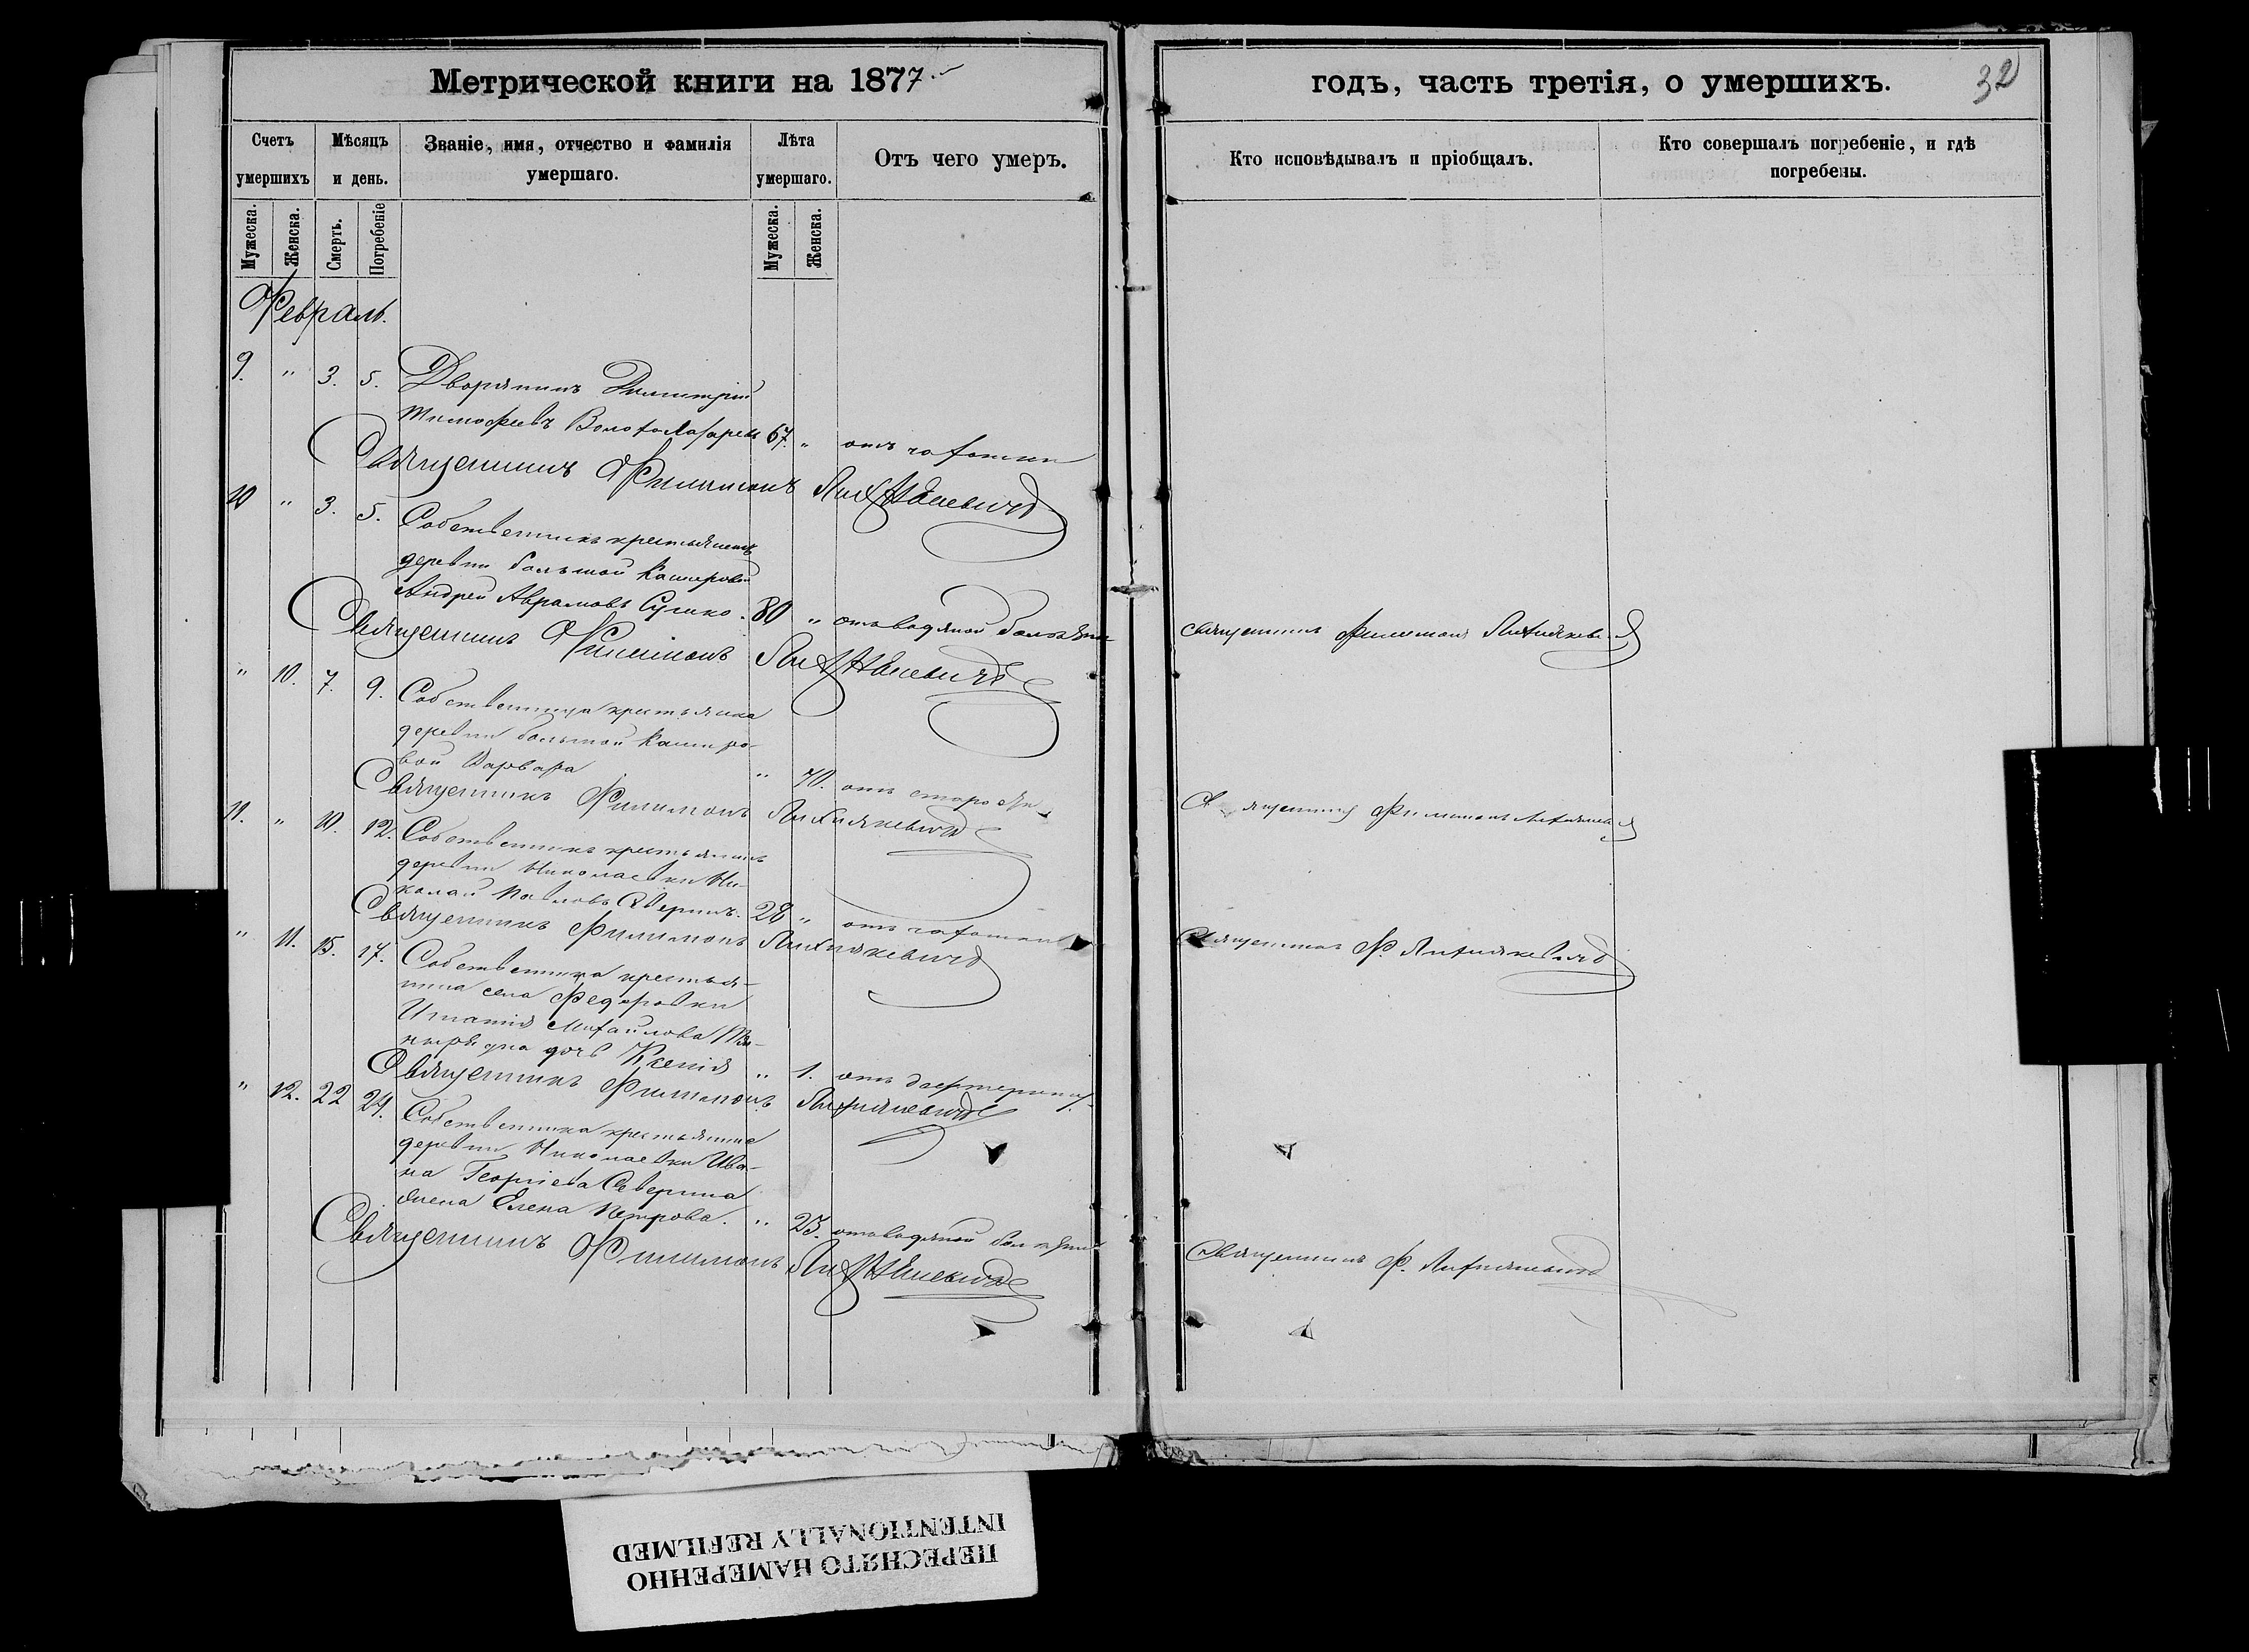 Метрической книги на 1877
годъ, часть третія, о умершихъ.
32
Счетъ умершихъ
Мѣсяцъ и день.
Званіе, имя, отчество и фамилія умершаго.
Лѣта умершаго.
Отъ чего умеръ.
Кто исповѣдывалъ и пріобщалъ.
Кто совершалъ погребеніе, и гдѣ погребены.
Мужеска.
Женска.
Смерть.
Погребеніе
Мужеска.
Женска.
Февраль.
9. " 3. 5. Дворянинъ Димитрій
Тимофеевъ 67. " отъ чахотки
Священникъ Филимонъ Лихнякевичъ
10 " 3. 5. Собственникъ крестьянинъ
деревни большой Кашировой
Андрей Аврамовъ Сушко. 80 " отъ водяной болѣзни
священникъ Филимонъ Лихнякевичъ
Священникъ Филимонъ Лихнякевичъ
" 10. 7. 9. Собственница крестьянка
деревни большой Каширо-
вой Варвара " 70. отъ старости
Священникъ Филимонъ Лихнякевичъ
Священникъ Филимонъ Лихнякевичъ
11. " 10. 12. Собственникъ крестьянинъ
деревни Николаевки Ни-
колай Павловъ Северинъ. 28 " отъ чахотки
Священникъ Ф. Лихнякевичъ
Священникъ Филимонъ Лихнякевичъ
" 11. 15. 17. Собственника крестья-
нина села Федоровки
Игнатія Михайлова
дочь Ксенія " 1. отъ дифтерита
Священникъ Филимонъ Лихнякевичъ
" 12. 22 24. Собственника крестьянина
деревни Николаевки Ива-
на Георгіева Северина
жена Елена Петрова. " 25. отъ водяной болѣзни
Священникъ Ф. Лихнякевичъ
Священникъ Филимонъ Лихнякевичъ
ПЕРЕСНЯТО НАМЕРЕННО
INTENTIONALLY REFILMED